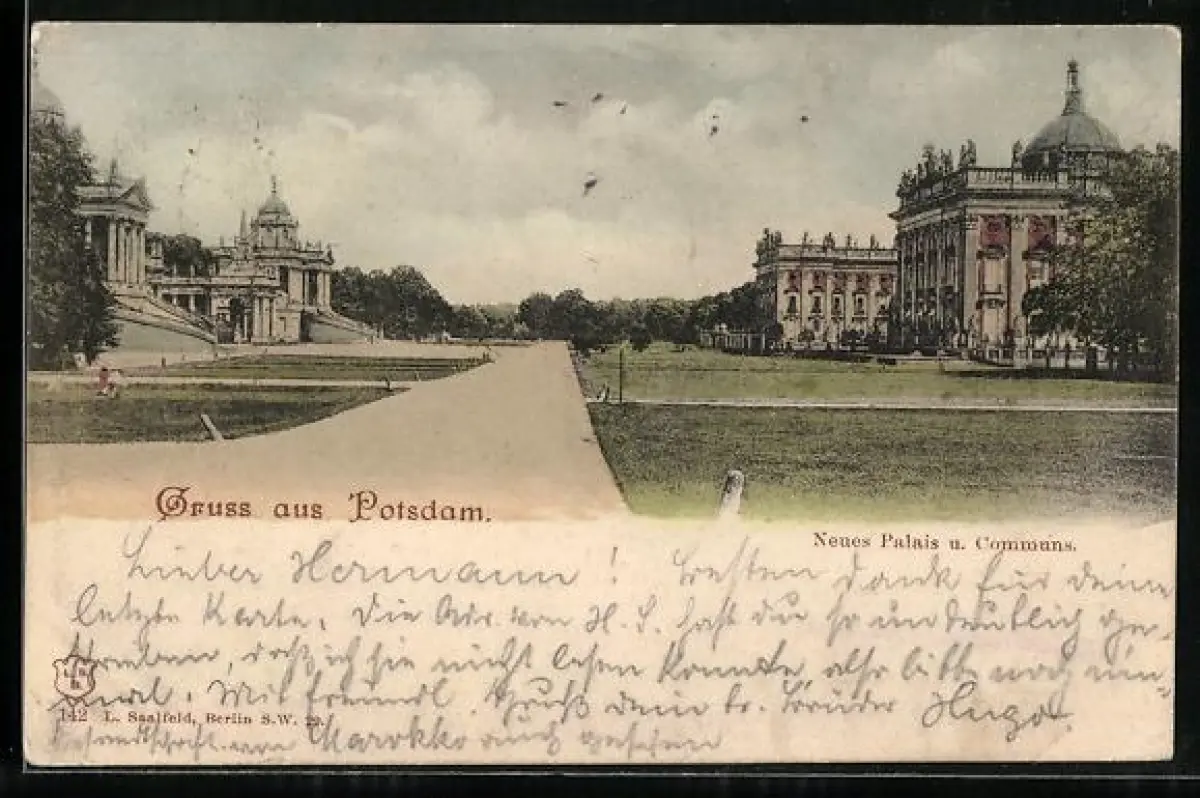 Gruss aus Potsdam.
Neues Palais u. Communs.
Lieber Hermann! Besten Dank für deine
letzte Karte. Die Adr. von H. S. hast du so undeutlich ge-
schrieben, daß ich sie nicht lesen konnte, also bitte noch ein-
mal. Mit freundl. Gruß dein tr. Bruder Hugo.
142 L. Saalfeld, Berlin S.W. 29.
Gesandtschaft von Marokko auch gesehen